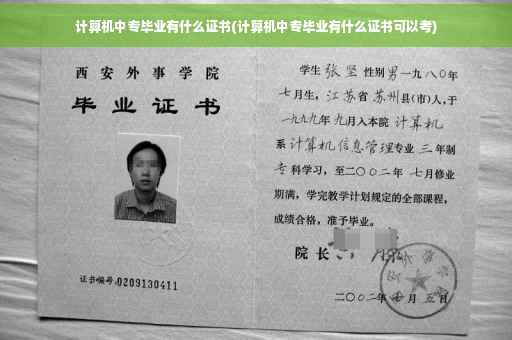 计算机中专毕业有什么证书(计算机中专毕业有什么证书可以考)
西安外事学院
毕业证书
证书编号:0209130411
学生 张坚 性别男一九八〇年
七月生，江苏省苏州县(市)人,于
一九九九年九月入本院 计算机
系 计算机信息管理专业 三 年制
专科学习，至二〇〇二年 七月修业
期满，学完教学计划规定的全部课程，
成绩合格，准予毕业。
院长
二〇〇二年 月 五日